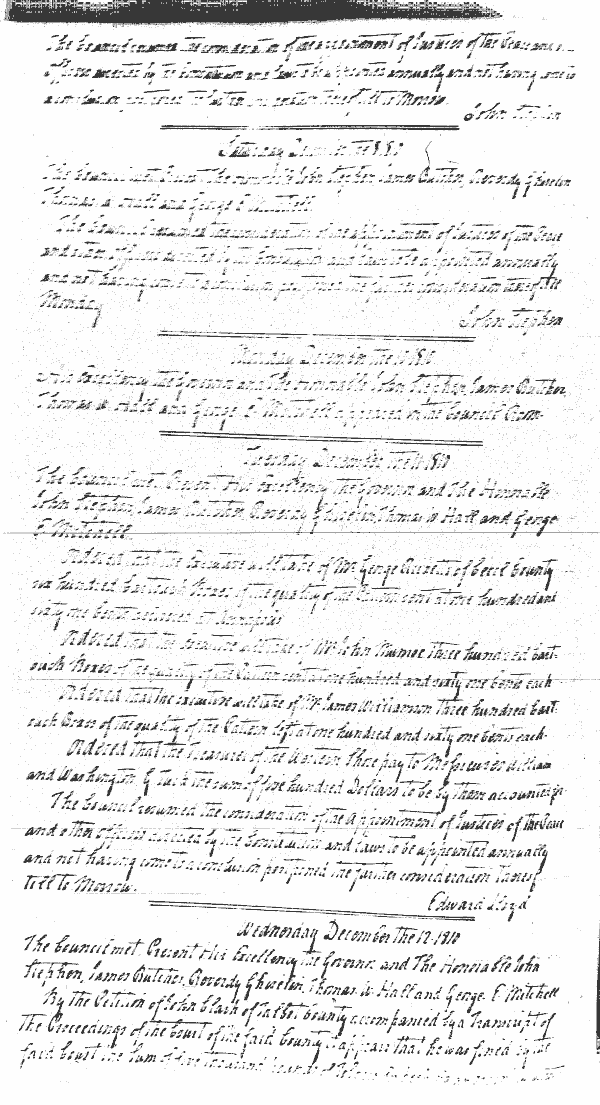 The Council resumed the consideration of the appointment of Justices of the Peace and
officers directed by the Constitution and Laws to be appointed annually and not having come to
a conclusion postponed the further consideration thereof till to Morrow.
John Stephen
Saturday December the 8 1810
The Council met Present The Honorable John Stephen, James Butcher, Reverdy Ghiselin
Thomas W. Hall and George E Mitchell.
The Council resumed the consideration of the appointment of Justices of the Peace
and other officers directed by the Constitution and Laws to be appointed annually
and not having come to a conclusion postponed the further consideration thereof till
Monday
John Stephen
Monday December the 10 1810
His Excellency the Governor and The Honorable John Stephen, James Butcher,
Thomas W. Hall and George E Mitchell appeared in the Council Room.
Tuesday December the 11 1810
The Council met. Present His Excellency the Governor and The Honorable
John Stephen, James Butcher, Reverdy Ghiselin, Thomas W Hall and George
E Mitchell.
Ordered that the Executive will take of Mr. George of Cecil County
six hundred Cartouch Boxes of the quality of the Pattern sent at one hundred and
sixty one Cents delivered at Annapolis
Ordered that the Executive will take of Mr. John Munroe three hundred Cart
ouch Boxes of the quality of the Pattern sent at one hundred and sixty one Cents each
Ordered that the Executive will take of Mr. James Williamson three hundred Cart
ouch Boxes of the quality of the Pattern left at one hundred and sixty one Cents each.
Ordered that the Treasurer of the Western Shore pay to Messieurs William
and Washington G Tuck the sum of five hundred Dollars to be by them accounted for
The Council resumed the consideration of the Appointment of Justices of the Peace
and other Officers directed by the Constitution and Laws to be appointed annually
and not having come to a conclusion postponed the further consideration thereof
till to Morrow.
Edward Lloyd
Wednesday December the 12. 1810
The Council met. Present His Excellency the Governor and The Honorable John
Stephen, James Butcher, Reverdy Ghiselin, Thomas W. Hall and George E Mitchell
By the Petition of John Clash of Talbot County accompanied by a Transcript of
The Proceedings of the Court of the said County it appears that he was fined by the
said Court the sum of five thousand pounds of Tobacco